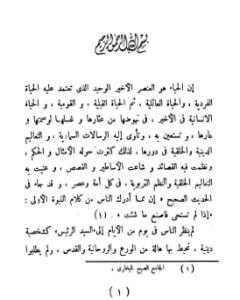 بسم الله الرحمن الرحيم
إن الحياء هو العنصر الأخير الوحيد الذى تعتمد عليه الحياة
الفردية ، والحياة العائلية ، ثم الحياة القبلية ، و القومية ، و الحياة
الانسانية فى الأخير ، فى نهوضها من عثارها و غسلها لوصمتها و
عارها ، و تستعين به ، وتأوى إليه الرسالات السماوية ، و التعاليم
الدينية والخلقية فى دورها ، لذلك كثرت حوله الأمثال و الحكم ،
ونظمت فيه القصائد و شاعت الأساطير و القصص ، و عنيت به
التعاليم الخلقية والنظم التربوية ، فى كل أمة وعصر ، و قد جاء فى
الحديث الصحيح « إن مما أدرك الناس من كلام النبوة الأولى :
«إذا لم تستحى فاصنع ما شئت » . (١)
لم ينظر الناس فى يوم من الأيام إلى «السيد الرئيس» كشخصية
دينية ، تحيط بها هالة من الورع والروحانية والقدس ، ولم يطلبوا
(١) الجامع الصحيح للبخارى .
(١)